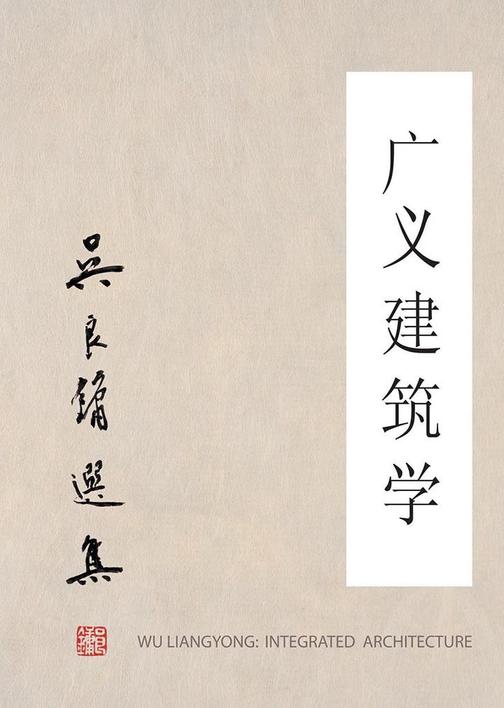 广义建筑学
吴良鏞選集
WU LIANGYONG: INTEGRATED ARCHITECTURE